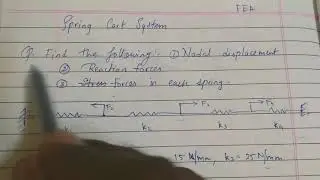 FEA
Spring Cart System
Q. Find the following: ① Nodal displacement
② Reaction forces
③ Stress forces in each spring.
F₂ F₃
k₁ k₂ k₃ k₄
15 N/mm, k₂ = 25 N/mm